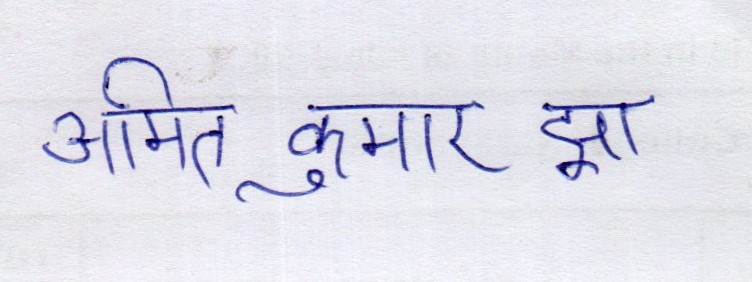 अमित कुमार झा